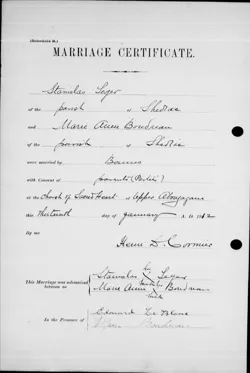 (Schedule B.)
MARRIAGE CERTIFICATE.
Stanislas Leger
of the parish of Shediac
and Marie Anne Boudreau
of the parish of Shediac
were married by Banns
with Consent of parents (Parties)
at Church of Sacred Heart at Upper Aboujagane
this thirteenth day of January A. D. 19
by me
Henri D. Cormier
This Marriage was solemnized between us
Stanislas Leger
Marie Anne Boudreau
In the Presence of
Edouard Le Blanc
Boudreau